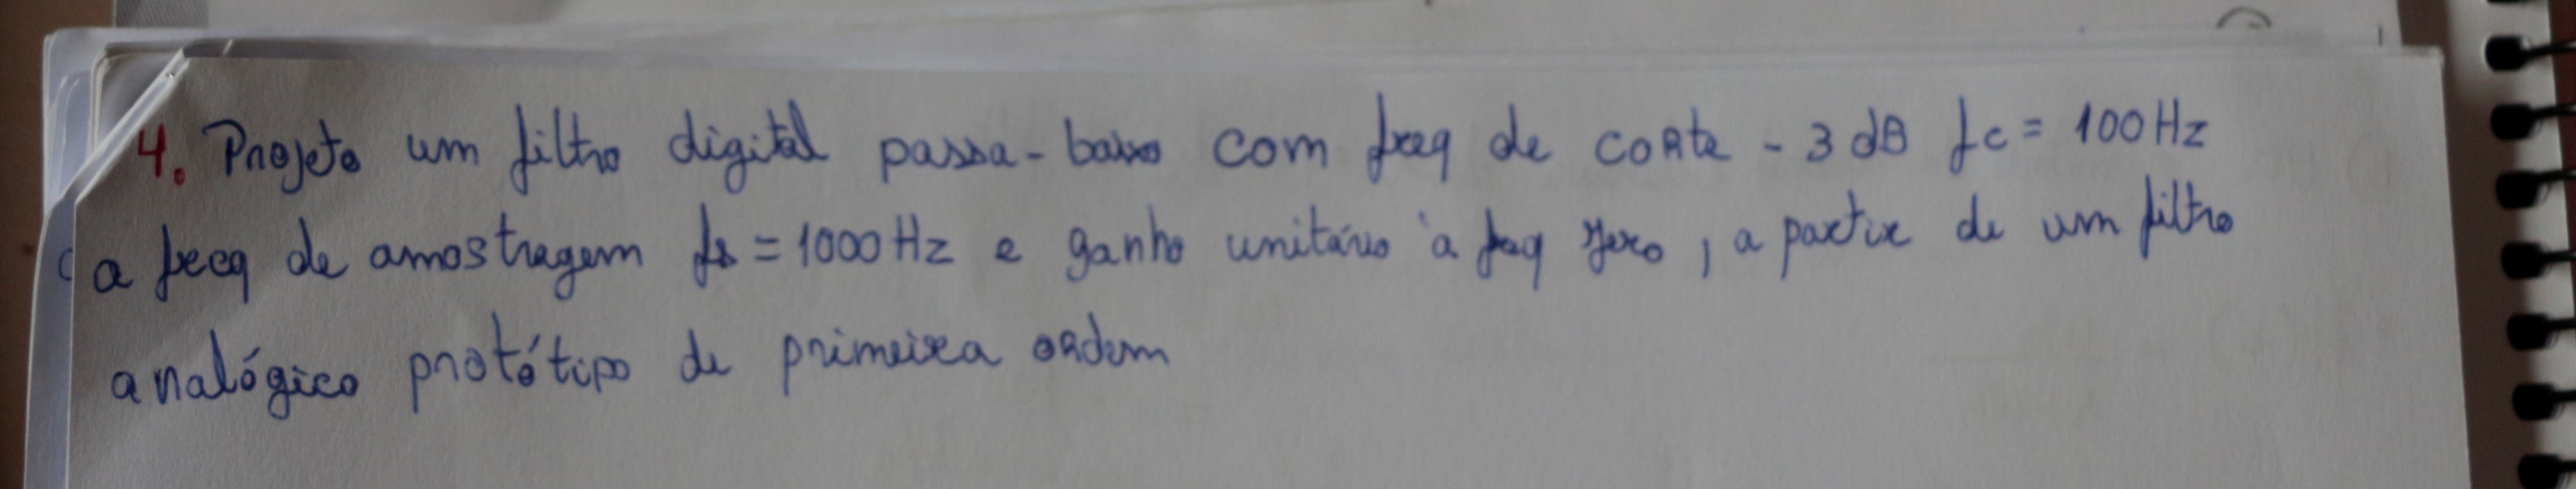 4. Projeto um filtro digital passa-baixo com freq de corte -3 dB fc = 100 Hz
a freq de amostragem fs = 1000 Hz e ganho unitário à freq zero, a partir de um filtro
analógico protótipo de primeira ordem